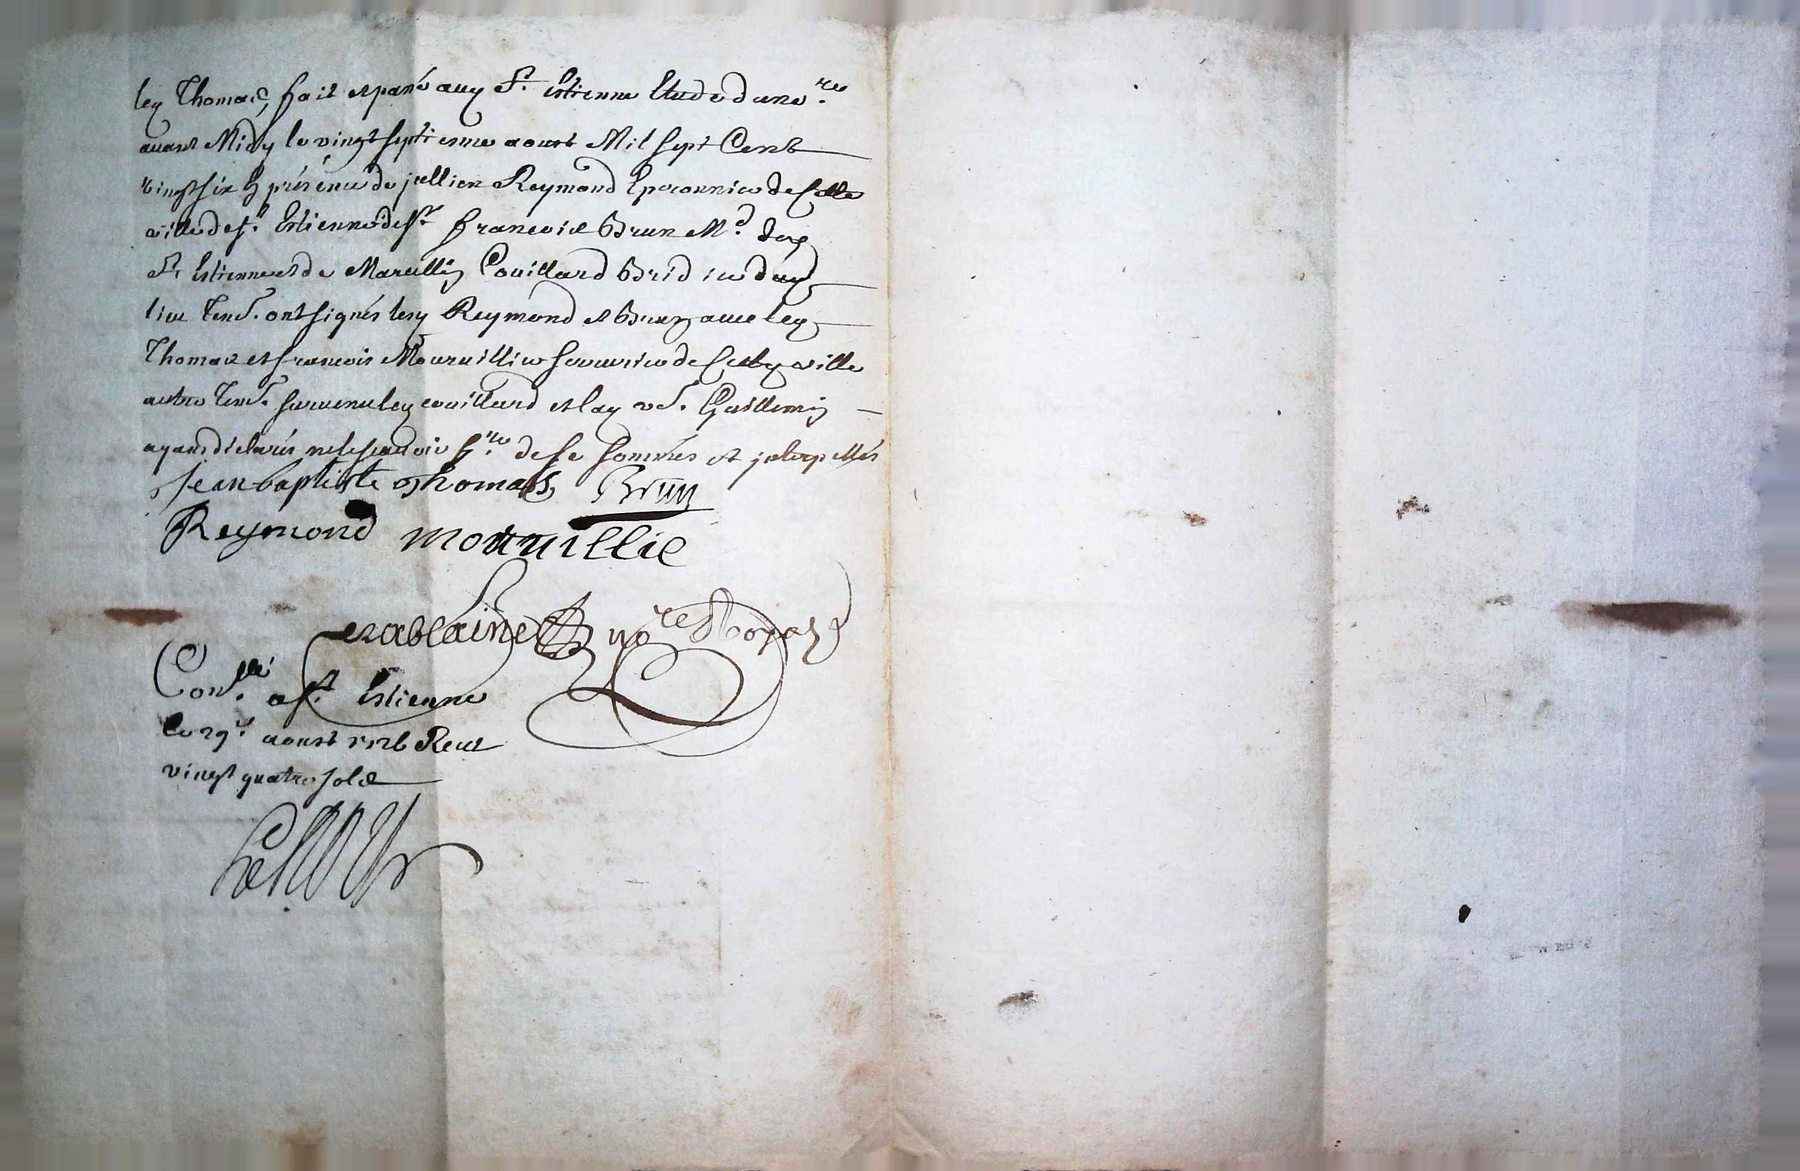 led Thomas, fait et passé aud St. Estienne Etude dud no.re
avant Midy le vingt septiesme aoust Mil sept Cent
vingt six En présence de jullien Reymond de Cette
ville de St. Estienne de Sr. francois Brun Md. dud
St. Estienne et de Marcellin Couillard dud
lieu Tem. ont signés lesd Reymond et Brun avec led
Thomas et francois Mournillie de Cetted ville
autre Tem. led couillard et lad ve. Guillemin
ayant declarés ne le scavoir de ce sommés et jnterpellés
Jean baptiste Thomas Brun
Reymond mournillie
no.re Royal
Con.llé a St Estienne
le 29.e aoust 1726 Receu
vingt quatre sols